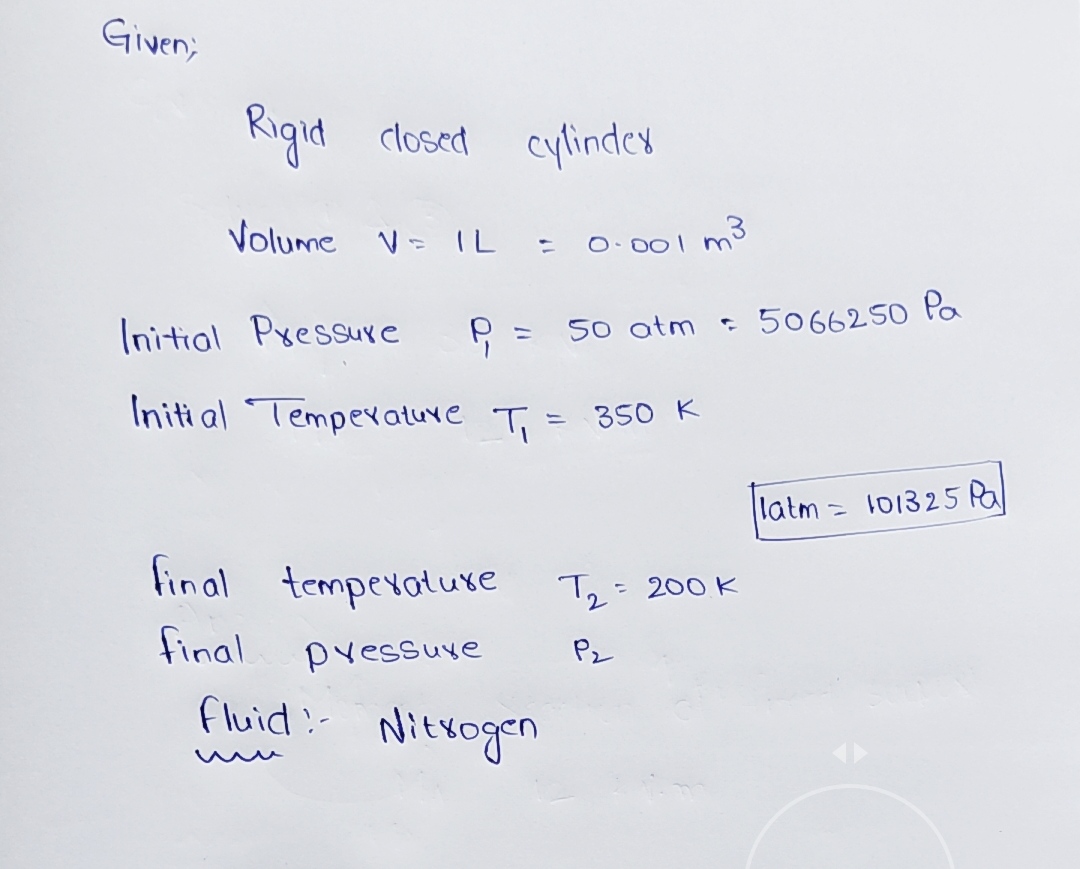 Given;
Rigid closed cylinder
Volume V = 1L = 0.001 m³
Initial Pressure P₁ = 50 atm = 5066250 Pa
Initial Temperature T₁ = 350 K
1atm = 101325 Pa
final temperature T₂ = 200 K
final pressure P₂
fluid :- Nitrogen